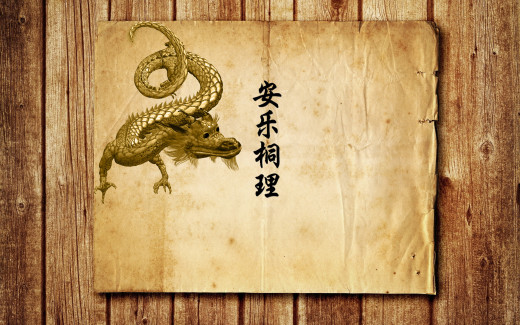 安乐桐理